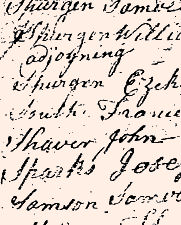 Spurgen James
Spurgen Willi
adjoyning
Spurgen Ezek
South Franc
Shaver John
Sparks Jose
Samson Samu